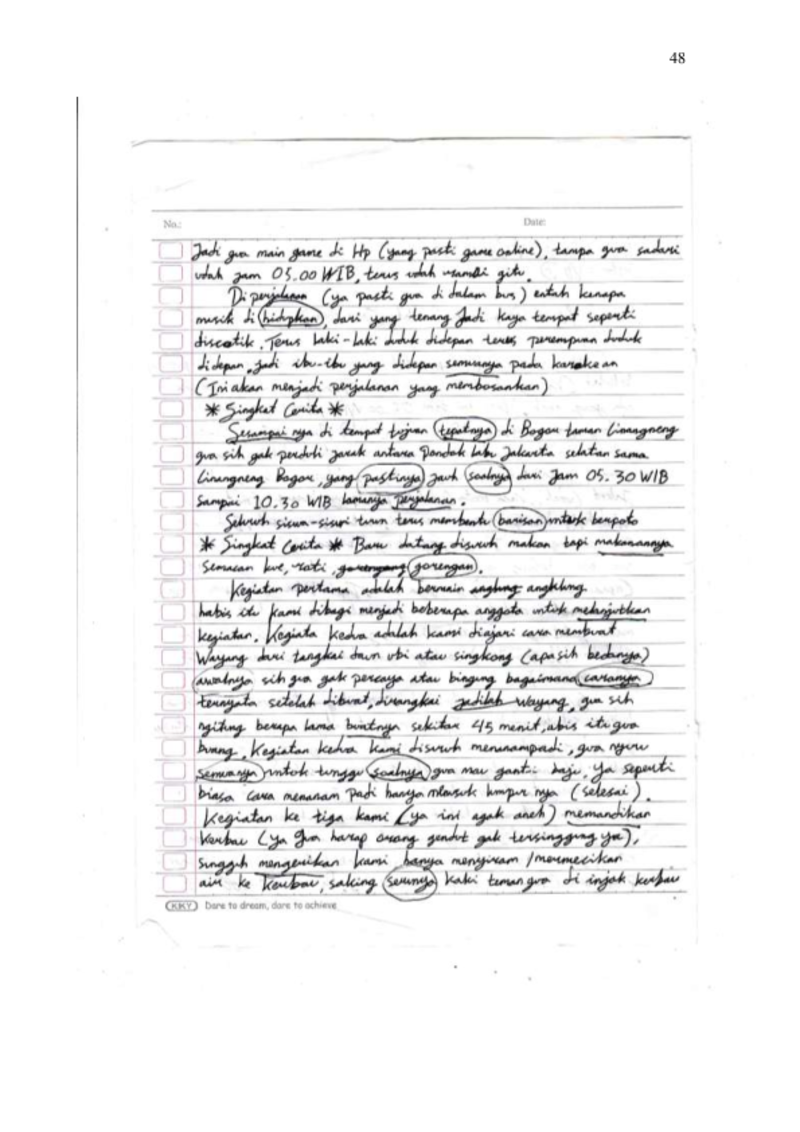 48
No.: Date:
Jadi gua main game di Hp (yang pasti game online), tampa gua sadari
udah jam 05.00 WIB, terus udah rame gitu.
Di perjalanan (ya pasti gua di dalam bus) entah kenapa
musik di hidupkan, dari yang tenang Jadi kaya tempat seperti
discotik. Terus laki-laki duduk didepan terus perempuan duduk
didepan, Jadi ibu-ibu yang didepan semuanya pada karokean
(Ini akan menjadi perjalanan yang membosankan)
* Singkat Cerita *
Sesampai nya di tempat tujuan tepatnya di Bogor taman
gua sih gak perduli jarak antara Pondok labu Jakarta selatan sama
Bogor, yang pastinya jauh soalnya dari Jam 05.30 WIB
Sampai 10.30 WIB lamanya perjalanan.
Seluruh siswa-siswi turun terus membentu barisan untuk berpoto
* Singkat Cerita * Baru datang disuruh makan tapi makanannya
Semacan kue, roti, gorengang gorengan.
Kegiatan pertama adalah bermain anglung angklung
habis itu kami dibagi menjadi beberapa anggota untuk melanjutkan
kegiatan. Kegiata kedua adalah kami diajari cara membuat
Wayang dari tangkai daun ubi atau singkong (apa sih bedanya)
awalnya sih gua gak percaya atau binging bagaimana caranya
ternyata setelah dibuat, dirangkai jadilah wayang, gua sih
ngitung berapa lama buatnya sekitar 45 menit, abis itu gua
buang. Kegiatan kedua kami disuruh menanampadi, gua nyuru
semuanya untuk tunggu soalnya gua mau ganti baju, Ya seperti
biasa cara menanam Padi hanya masuk lumpur nya (selesai).
Kegiatan ke tiga kami (ya ini agak aneh) memandikan
kerbau (ya gua harap orang gendut gak tersinggung ya),
sungguh mengerikan kami hanya menyiram / mermecikan
air ke kerbau, saking serunya kaki teman gua di injak kerbau
KKY Dare to dream, dare to achieve